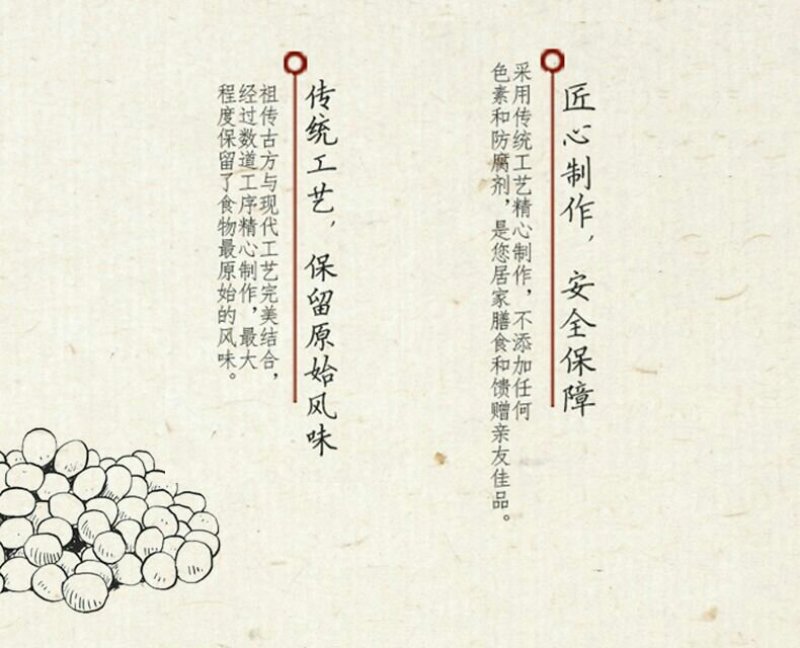 匠心制作，安全保障
采用传统工艺精心制作，不添加任何
色素和防腐剂，是您居家膳食和馈赠亲友佳品。
传统工艺，保留原始风味
祖传古方与现代工艺完美结合，
经过数道工序精心制作，最大
程度保留了食物最原始的风味。